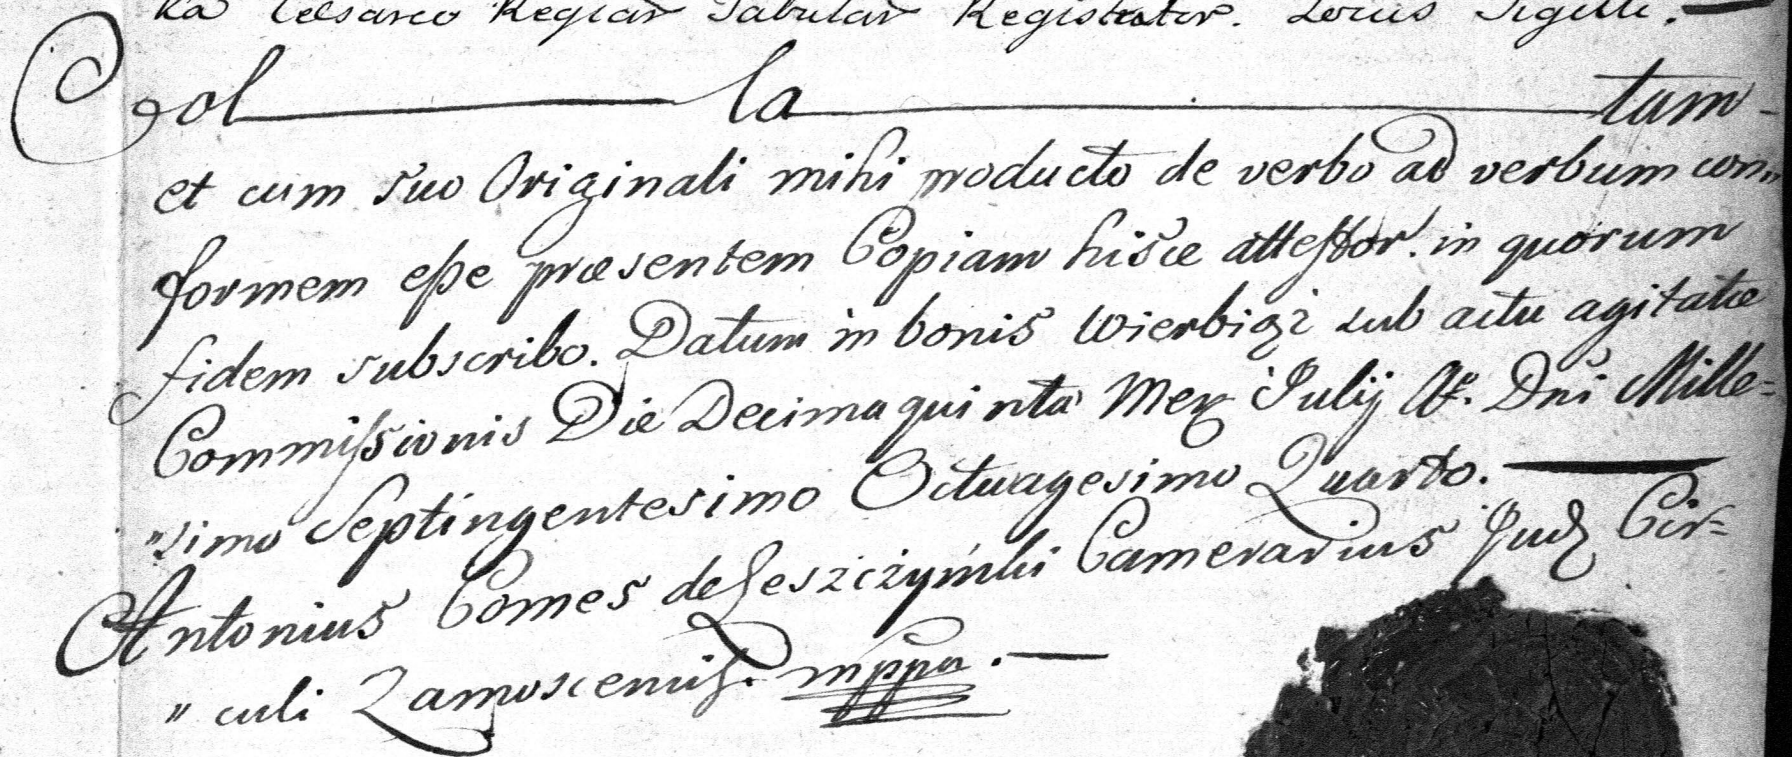 Ka Cesareo Regiar Tabular Registrator. Locus Sigilli. —
Col — la — tum-
et cum suo Originali mihi producto de verbo ad verbum con„
formem eſse præsentem Copiam hisce atteſtor. in quorum
fidem subscribo. Datum in bonis Wierbiąż sub actu agitatæ
Commiſsionis Die Decima quinta Mens Julij Ao. Dni Mille=
„simo Septingentesimo Octuagesimo Quarto. —
Antonius Comes de Leszczyński Camerarius Jud Cir=
„culi Zamoscensis. mppa. —